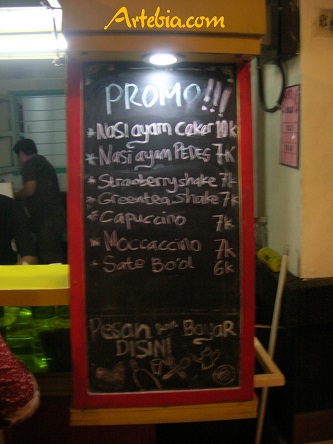 Artebia.com
PROMO!!!
* Nasi ayam Ceker 10k
* Nasi ayam PEDES 7K
* Strawberry shake 7k
* Greentea shake 7k
* Capuccino 7k
* Moccaccino 7k
* Sate Bo'ol 6k
Pesan Bayar
DISINI